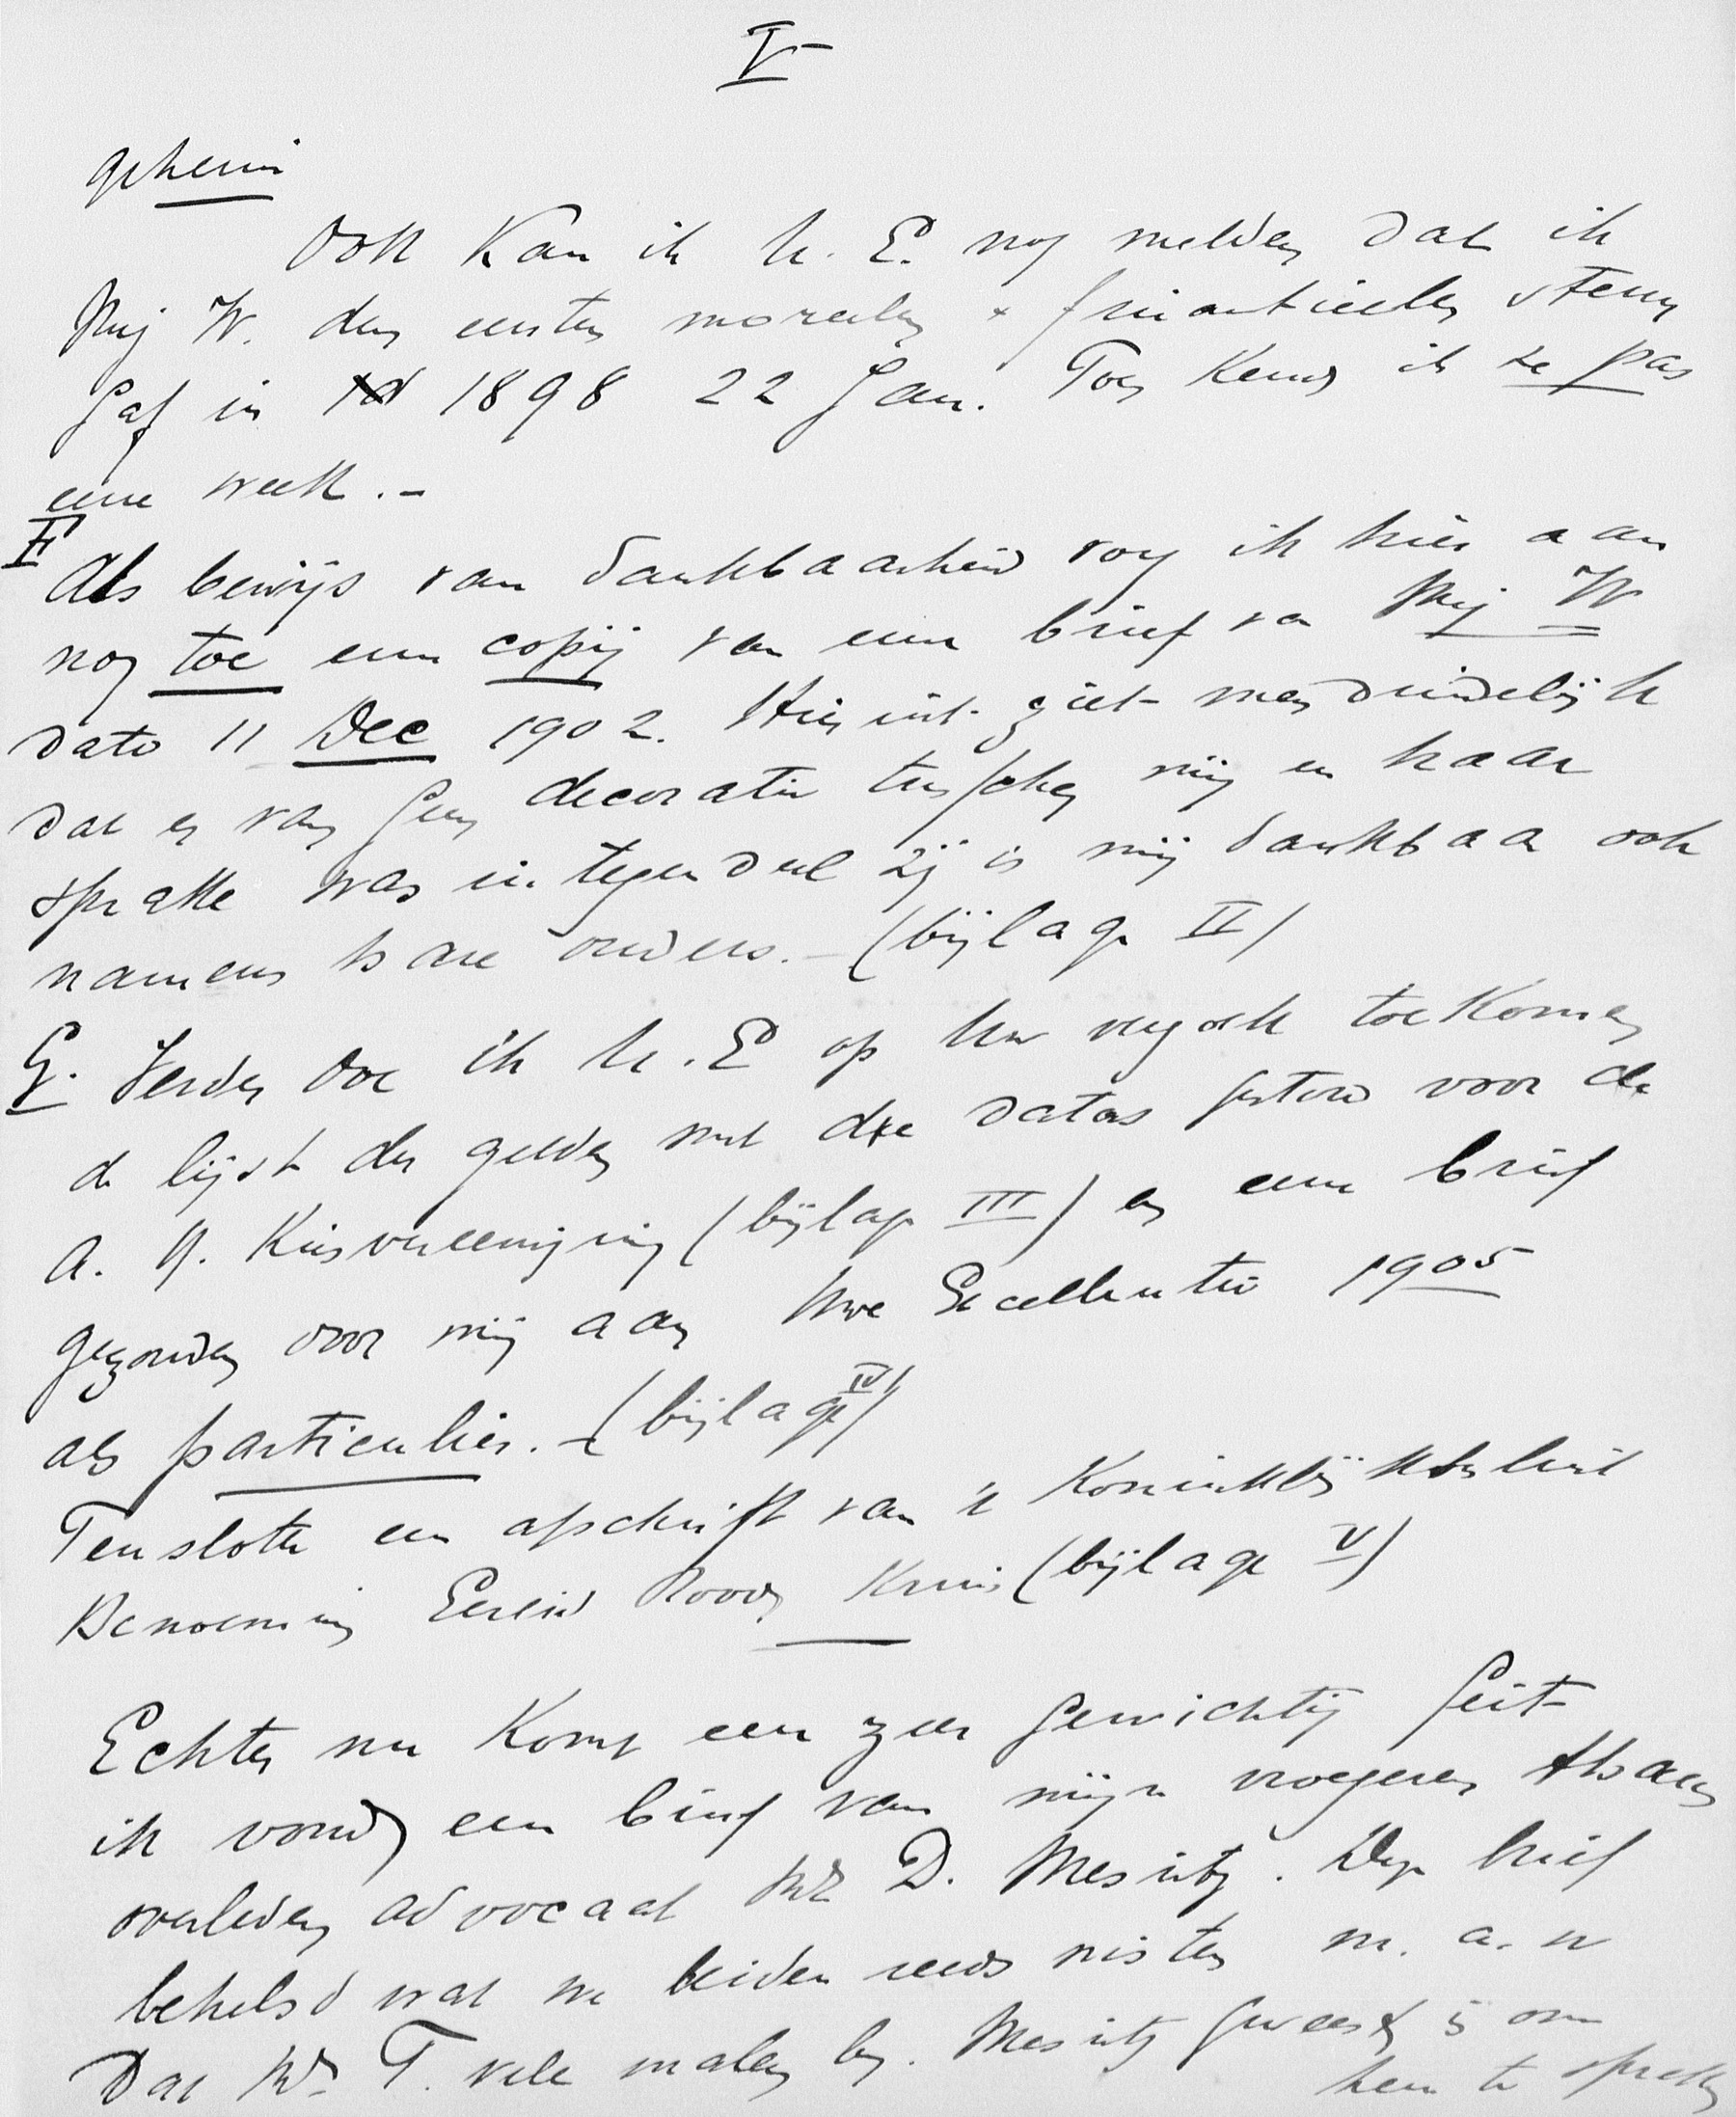 V
geheim
Ook kan ik U. E. nog melden dat ik
Mej W. den eersten moreelen + finantieelen steun
gaf in 1898 22 Jan. Toen kende ik ze pas
eene week. -
F
Als bewijs van dankbaarheid voeg ik hier aan
nog toe een copij van een brief van Mej W
dato 11 Dec 1902. Hieruit ziet men duidelijk
dat er van geen decoratie tusschen mij en haar
sprake was in tegendeel zij is mij dankbaar ook
namens hare ouders. - (bijlage II)
G. Verder doe ik U. E op Uw verzoek toekomen
de lijst der gelden met de datas gestord voor de
A. R. Kiesvereeniging (bijlage III) en een brief
gezonden door mij aan Uwe Excellentie 1905
als particulier. - (bijlage IV)
Ten slotte een afschrift van 't Koninklijk besluit
Benoeming Eerelid Roode Kruis (bijlage V)
Echter nu komt een zeer gewichtig feit
ik vond een brief van mijn vroegeren thans
overleden advocaat Mr D. Mesritz. Deze brief
behelsd wat we beiden reeds wisten m. a. w
Dat Mr T. vele malen by. Mesritz geweest is om
hem te spreken